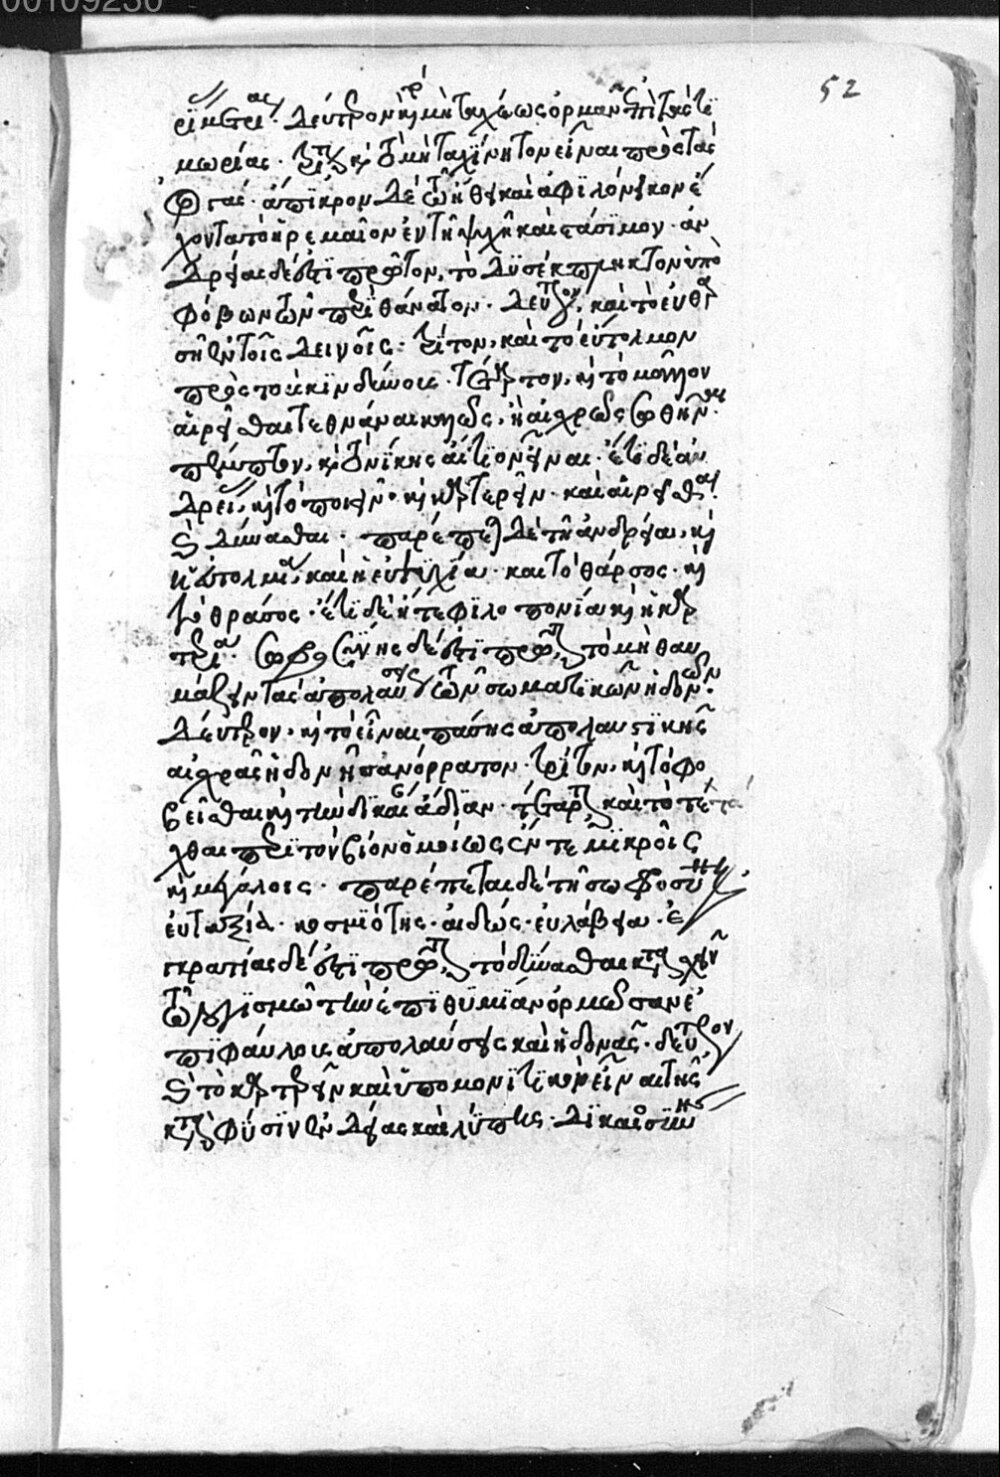 00109230
52
δεύτερον καὶ μὴ ταχέως ὁρμᾶν ἐπὶ τὰς τι
μωρίας. τρίτον καὶ τὸ μὴ ταχικίνητον εἶναι πρὸς τὰς
ὀργάς. ἄπικρον δὲ τῶ ἤθει καὶ ἀφιλόνεικον ἔ
χοντα τὸ ἠρεμαῖον ἐν τῆ ψυχῆ καὶ στάσιμον. ἀν
δρείας δέ ἐστι πρῶτον, τὸ δυσέκπληκτον ὑπὸ
φόβων τῶν περὶ θάνατον. δεύτερον, καὶ τὸ εὐθαρ
σῆ ἐν τοῖς δεινοῖς. τρίτον, καὶ τὸ εὔτολμον
πρὸς τοὺς κινδύνους. τέταρτον, καὶ τὸ μᾶλλον
αἱρεῖσθαι τεθνάναι καλῶς, ἢ αἰσχρῶς σωθῆναι.
πέμπτον, καὶ τὸ νίκης αἴτιον εἶναι. ἔτι δὲ ἀν
δρεί, καὶ τὸ πονεῖν. καὶ καρτερεῖν. καὶ αἱρεῖσθαι
δύνασθαι. παρέπεται δὲ τῆ ἀνδρεία, καὶ
ἡ εὐτολμία, καὶ ἡ εὐψυχία. καὶ τὸ θάρσος. καὶ
τὸ θράσος. ἔτι δὲ ἥ τε φιλοπονία καὶ ἡ καρ
τερία. σωφροσύνης δέ ἐστι πρῶτον, τὸ μὴ θαυ
μάζειν τὰς ἀπολαύσεις τῶν σωματικῶν ἡδονῶν.
δεύτερον. καὶ τὸ εἶναι πάσης ἀπολαυστικῆς
αἰσχρᾶς ἡδονῆς ἀνόρρατον. τρίτον, καὶ τὸ φο
βεῖσθαι καὶ τὴν δικαίαν ἀδοξίαν. τέταρτον καὶ τὸ τετά
χθαι περὶ τὸν βίον ὁμοίως ἔν τε μικροῖς
καὶ μεγάλοις. παρέπεται δὲ τῆ σωφροσύνη
εὐταξία. κοσμιότης. αἰδώς. εὐλάβεια. ἐ
γκρατίας δέ ἐστι πρῶτον τὸ δύνασθαι κατασχεῖν
τῶ λογισμῶ τὴν ἐπιθυμίαν ὁρμῶσαν ἐ
πὶ φαύλους ἀπολαύσεις καὶ ἡδονάς. δεύτερον
τὸ καρτερεῖν καὶ ὑπομονητικὸν εἶναι τῆς
κατὰ φύσιν ἐνδείας καὶ λύπης. δικαιοσύνης